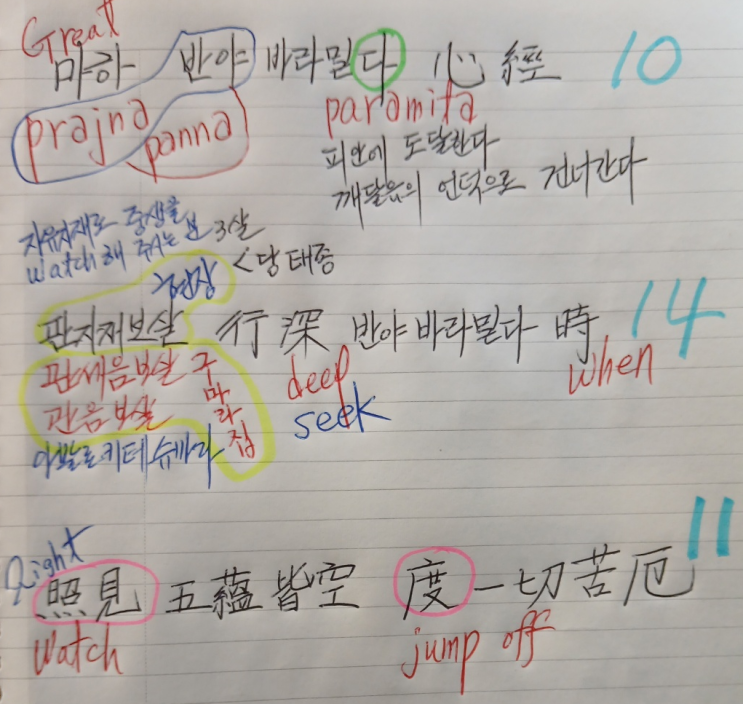 Great
마하 반야 바라밀다 心經 10
prajna panna paramita
피안에 도달한다
깨달음의 언덕으로 건너간다
자유자재로 중생을
watch해 주는 보살
현장 < 당 태종
관자재보살 行 深 반야 바라밀다 時 14
관세음보살 구마라집 deep when
관음보살 seek
슈바라
Light 11
照見 五蘊皆空 度一切苦厄
watch jump off